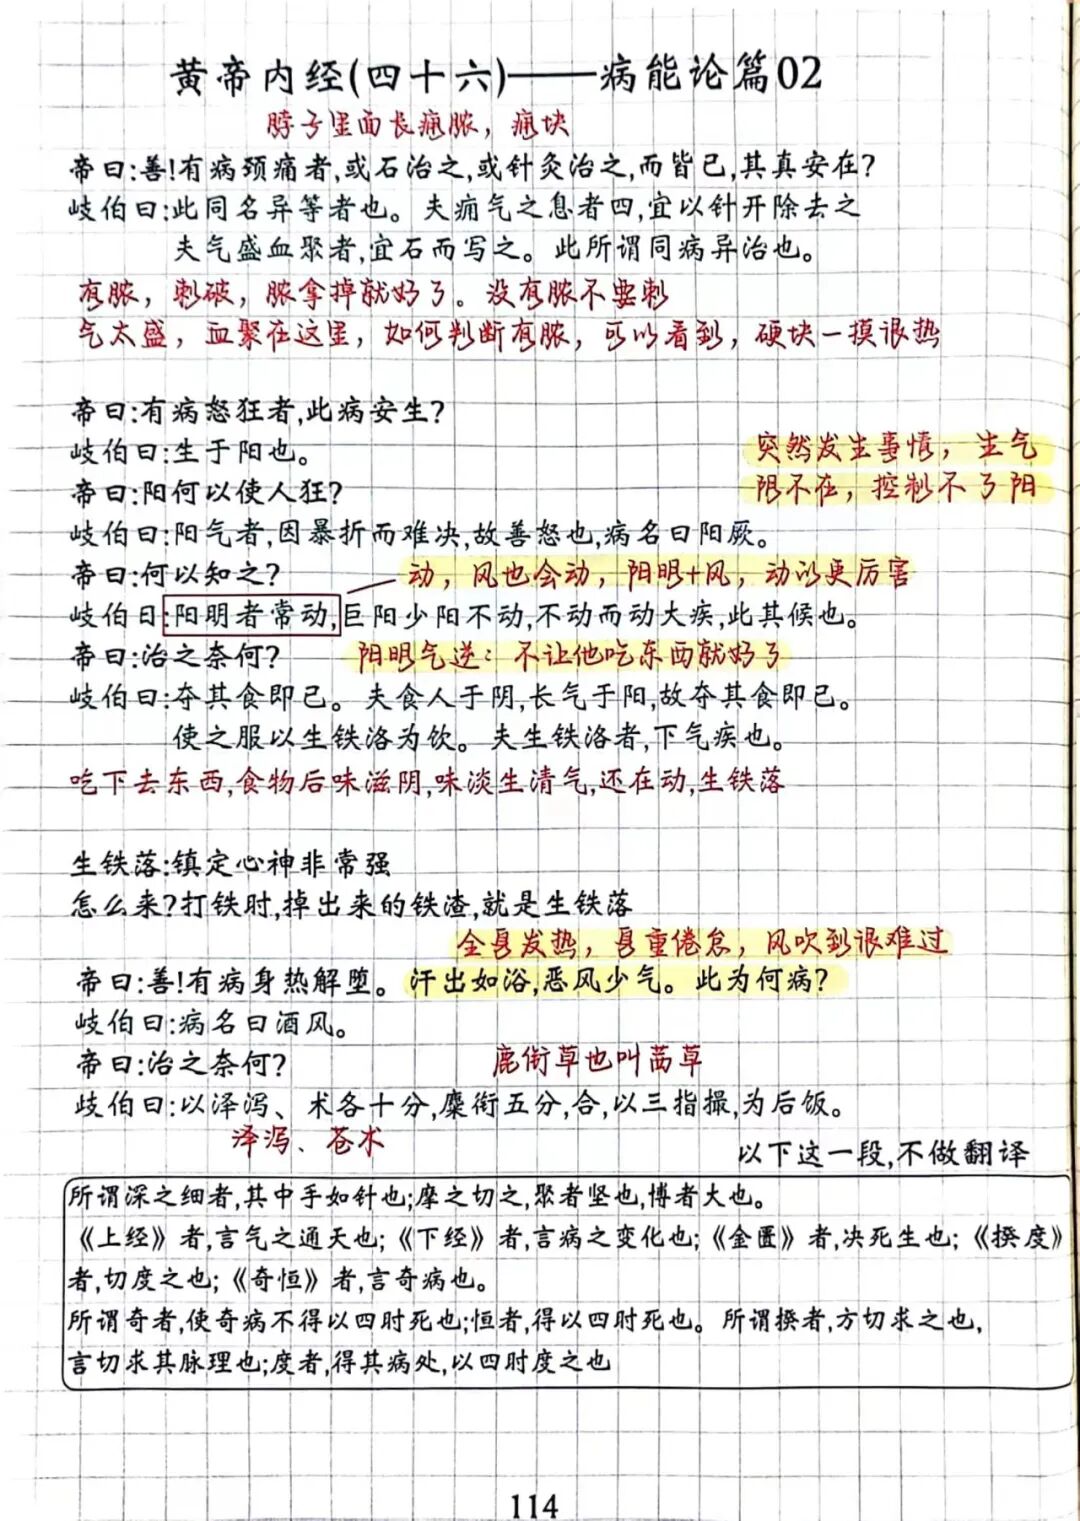 黄帝内经(四十六)——病能论篇02
脖子里面长痈脓，痈块
帝曰:善!有病颈痛者,或石治之,或针灸治之,而皆已,其真安在?
岐伯曰:此同名异等者也。夫痈气之息者四,宜以针开除去之
夫气盛血聚者,宜石而写之。此所谓同病异治也。
有脓，刺破，脓拿掉就好了。没有脓不要刺
气太盛，血聚在这里，如何判断有脓，可以看到，硬块一摸很热
帝曰:有病怒狂者,此病安生?
岐伯曰:生于阳也。
突然发生事情，生气
帝曰:阳何以使人狂?
阴不在，控制不了阳
岐伯曰:阳气者,因暴折而难决,故善怒也,病名曰阳厥。
帝曰:何以知之?
动，风也会动，阳明+风，动以更厉害
岐伯曰:阳明者常动,巨阳少阳不动,不动而动大疾,此其候也。
帝曰:治之奈何?
阳明气逆：不让他吃东西就好了
岐伯曰:夺其食即已。夫食人于阴,长气于阳,故夺其食即已。
使之服以生铁洛为饮。夫生铁洛者,下气疾也。
吃下去东西,食物后味滋阴,味淡生清气,还在动,生铁落
生铁落:镇定心神非常强
怎么来?打铁时,掉出来的铁渣,就是生铁落
全身发热，身重倦怠，风吹到很难过
帝曰:善!有病身热解堕。汗出如浴,恶风少气。此为何病?
岐伯曰:病名曰酒风。
帝曰:治之奈何?
鹿衔草也叫茜草
岐伯曰:以泽泻、术各十分,麋衔五分,合,以三指撮,为后饭。
泽泻、苍术
以下这一段,不做翻译
所谓深之细者,其中手如针也;摩之切之,聚者坚也,博者大也。
《上经》者,言气之通天也;《下经》者,言病之变化也;《金匮》者,决死生也;《揆度》
者,切度之也;《奇恒》者,言奇病也。
所谓奇者,使奇病不得以四时死也;恒者,得以四时死也。所谓揆者,方切求之也,
言切求其脉理也;度者,得其病处,以四时度之也
114